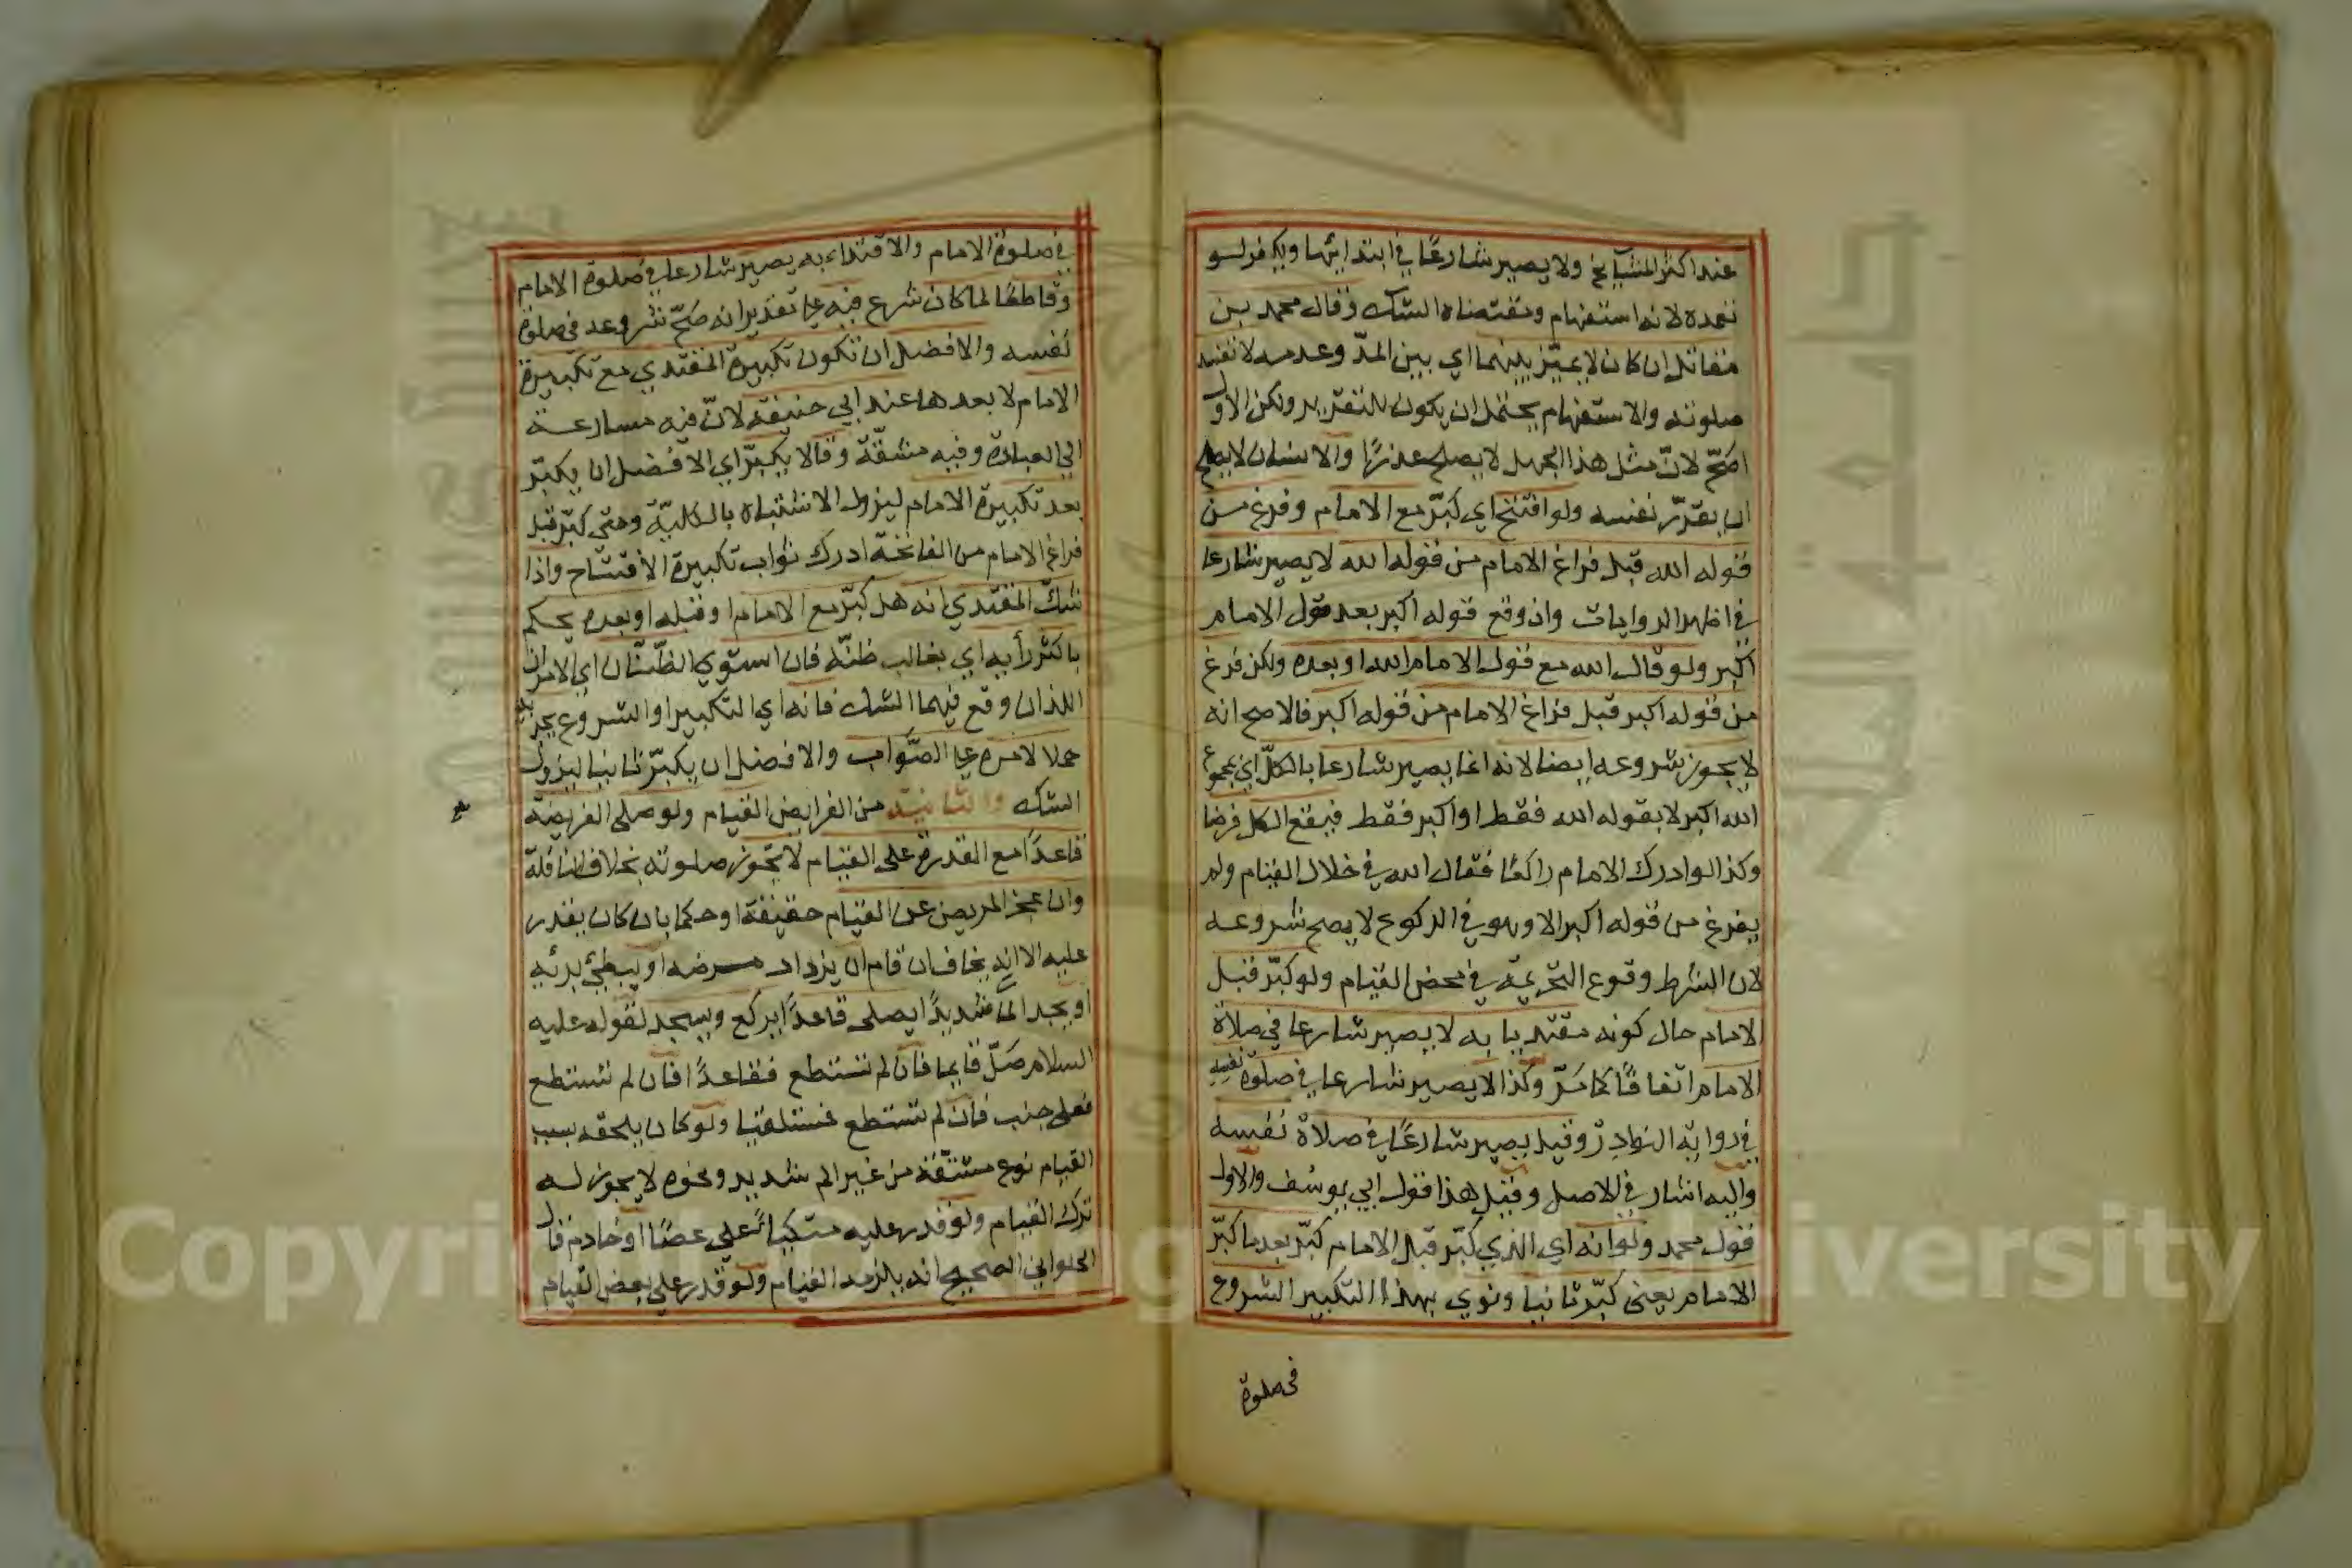 عند اكثر المشايخ ولا يصير شارعًا في ابتدائها ويكفر لو
تعمده لانه استفهام ومقتضاه الشك وقال محمد بن
مقاتل ان كان لا يميّز بينهما اي بين المدّ وعدمه لا تفسد
صلوته والاستفهام يحتمل ان يكون للتقرير ولكن الاول
اصحّ لانّ مثل هذا الجهل لا يصلح عذرًا والانسان لا يصلح
ان يقرّر نفسه ولو افتتح اي كبّر مع الامام وفرغ من
قوله الله قبل فراغ الامام من قوله الله لا يصير شارعا
في اظهر الروايات وان وقع قوله اكبر بعد قول الامام
اكبر ولو قال الله مع قول الامام الله او بعده ولكن فرغ
من قوله اكبر قبل فراغ الامام من قوله اكبر فالاصح انه
لا يجوز شروعه ايضا لانه انما يصير شارعا بالكلّ اي بمجموع
الله اكبر لا بقوله الله فقط او اكبر فقط فيقع الكل فرضا
وكذا لو ادرك الامام راكعًا فقال الله في خلال القيام ولم
يفرغ من قوله اكبر الا وهو في الركوع لا يصح شروعه
لان الشرط وقوع التحريمة في محض القيام ولو كبّر قبل
الامام حال كونه مقتديا به لا يصير شارعا في صلاة
الامام اتفاقًا كما مَرّ وكذا لا يصير شارعا في صلوة نفسه
في رواية النوادر وقيل يصير شارعًا في صلاة نفسه
واليه اشار في الاصل وقيل هذا قول ابي يوسف والاول
قول محمد ولو انه اي الذي كبّر قبل الامام كبّر بعد ما كبّر
الامام يعني كبّر ثانيا ونوي بهذا التكبير الشروع
في صلوة
في صلوة الامام والاقتداء به يصير شارعا في صلوة الامام
وقاطعًا لما كان شرع فيه علي تقدير انه صحّ شروعه في صلوة
نفسه والافضل ان تكون تكبيرة المقتدي مع تكبيرة
الامام لا بعدها عند ابي حنيفة لانّ فيه مسارعة
الي العبادة وفيه مشقّة وقالا يكبّر اي الافضل ان يكبّر
بعد تكبيرة الامام ليزول الاشتباه بالكليّة ومتي كبّر قبل
فراغ الامام من الفاتحة ادرك ثواب تكبيرة الافتتاح واذا
شكّ المقتدي انه هل كبّر مع الامام او قبله او بعده يحكم
باكثر رأيه اي بغالب ظنّه فان استوي الظنّان اي الامران
اللذان وقع فيهما الشك فانه اي التكبير او الشروع يجزيه
حملا لامره علي الصّواب والافضل ان يكبّر ثانيا ليزول
الشك والثانية من الفرايض القيام ولو صلى الفريضة
قاعدًا مع القدرة على القيام لا تجوز صلوته بخلاف النافلة
وان عجز المريض عن القيام حقيقة او حكما بان كان يقدر
عليه الا انه يخاف ان قام ان يزداد مرضه او يبطئ برئه
او يجد المًا شديدًا يصلى قاعدًا يركع ويسجد لقوله عليه
السلام صَلّ قايما فان لم تستطع فقاعدًا فان لم تستطع
فعلى جنب فان لم تستطع فمستلقيا ولو كان يلحقه بسبب
القيام نوع مشقّة من غير الم شديد ونحوه لا يجوز له
ترك القيام ولو قدر عليه متكيًا على عصًا او خادم قال
الحلواني الصحيح انه يلزمه القيام ولو قدر على بعض القيام